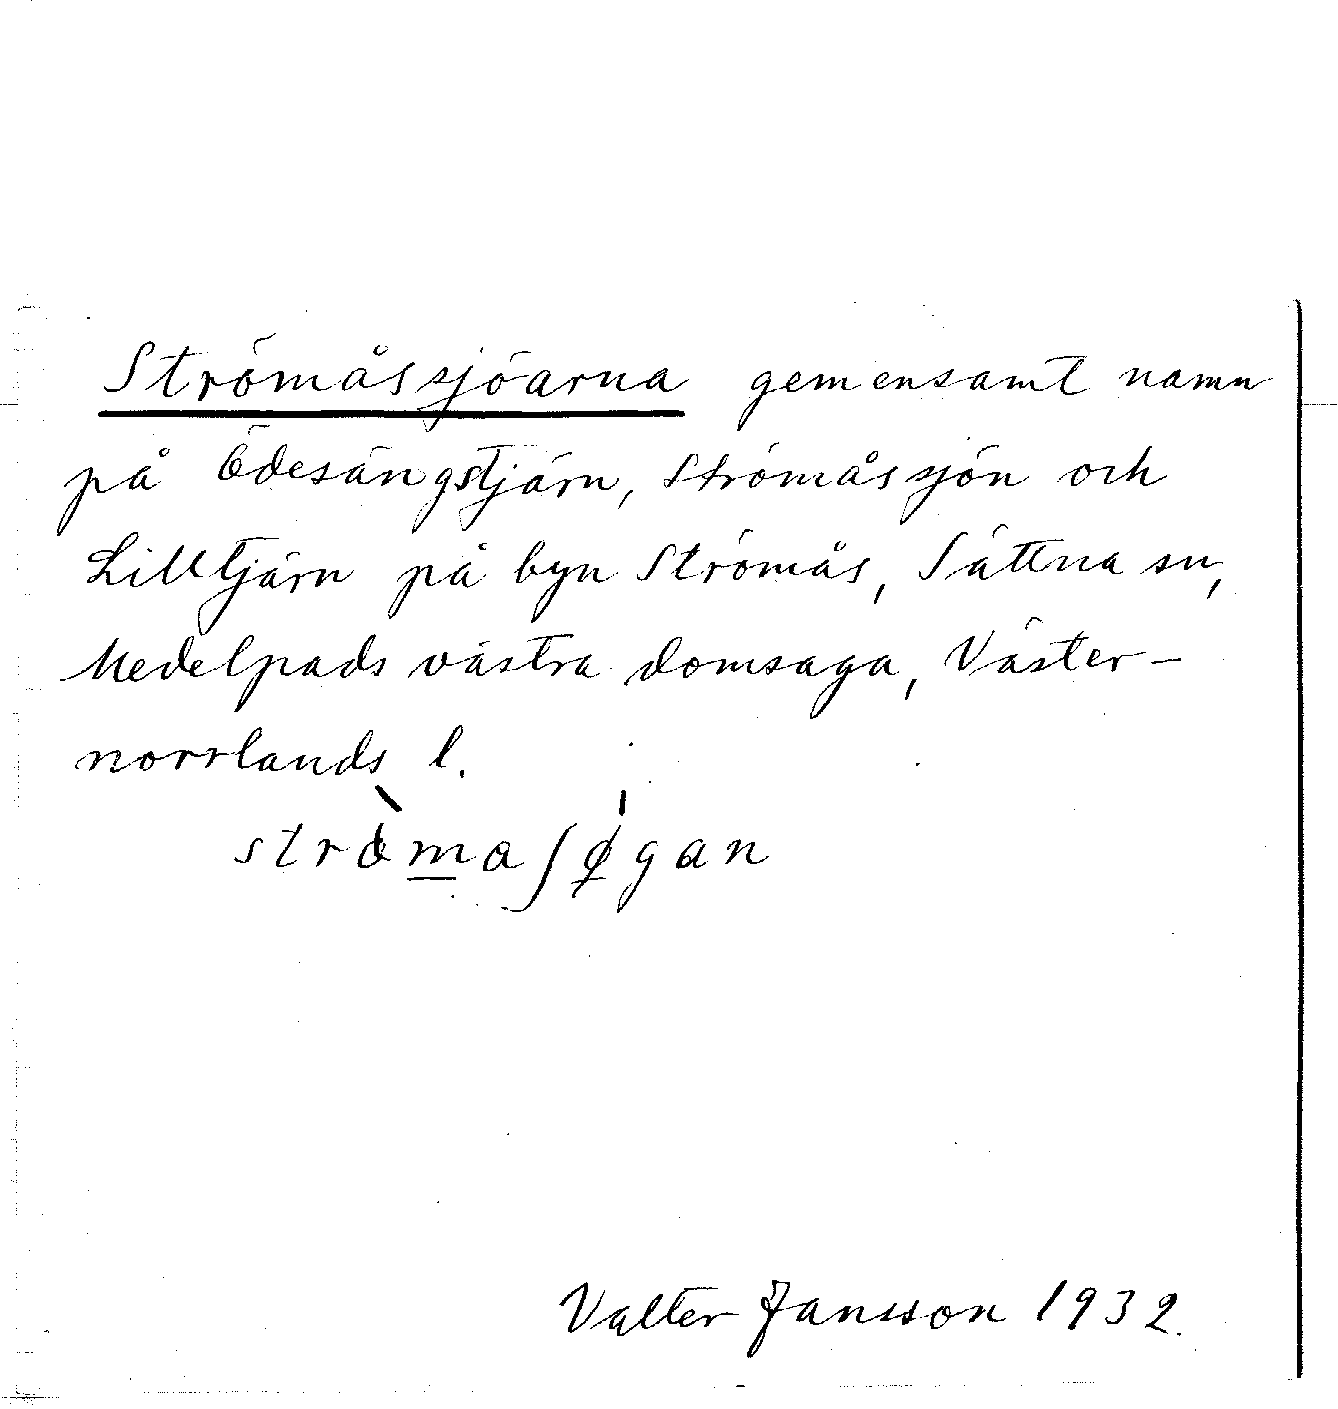 Strömåssjöarna gemensamt namn
på Ödesängstjärn, Strömåssjön och
Lilltjärn på byn Strömås, Sättna sn,
Medelpads västra domsaga, Väster-
norrlands l.
Valter Jansson 1932.